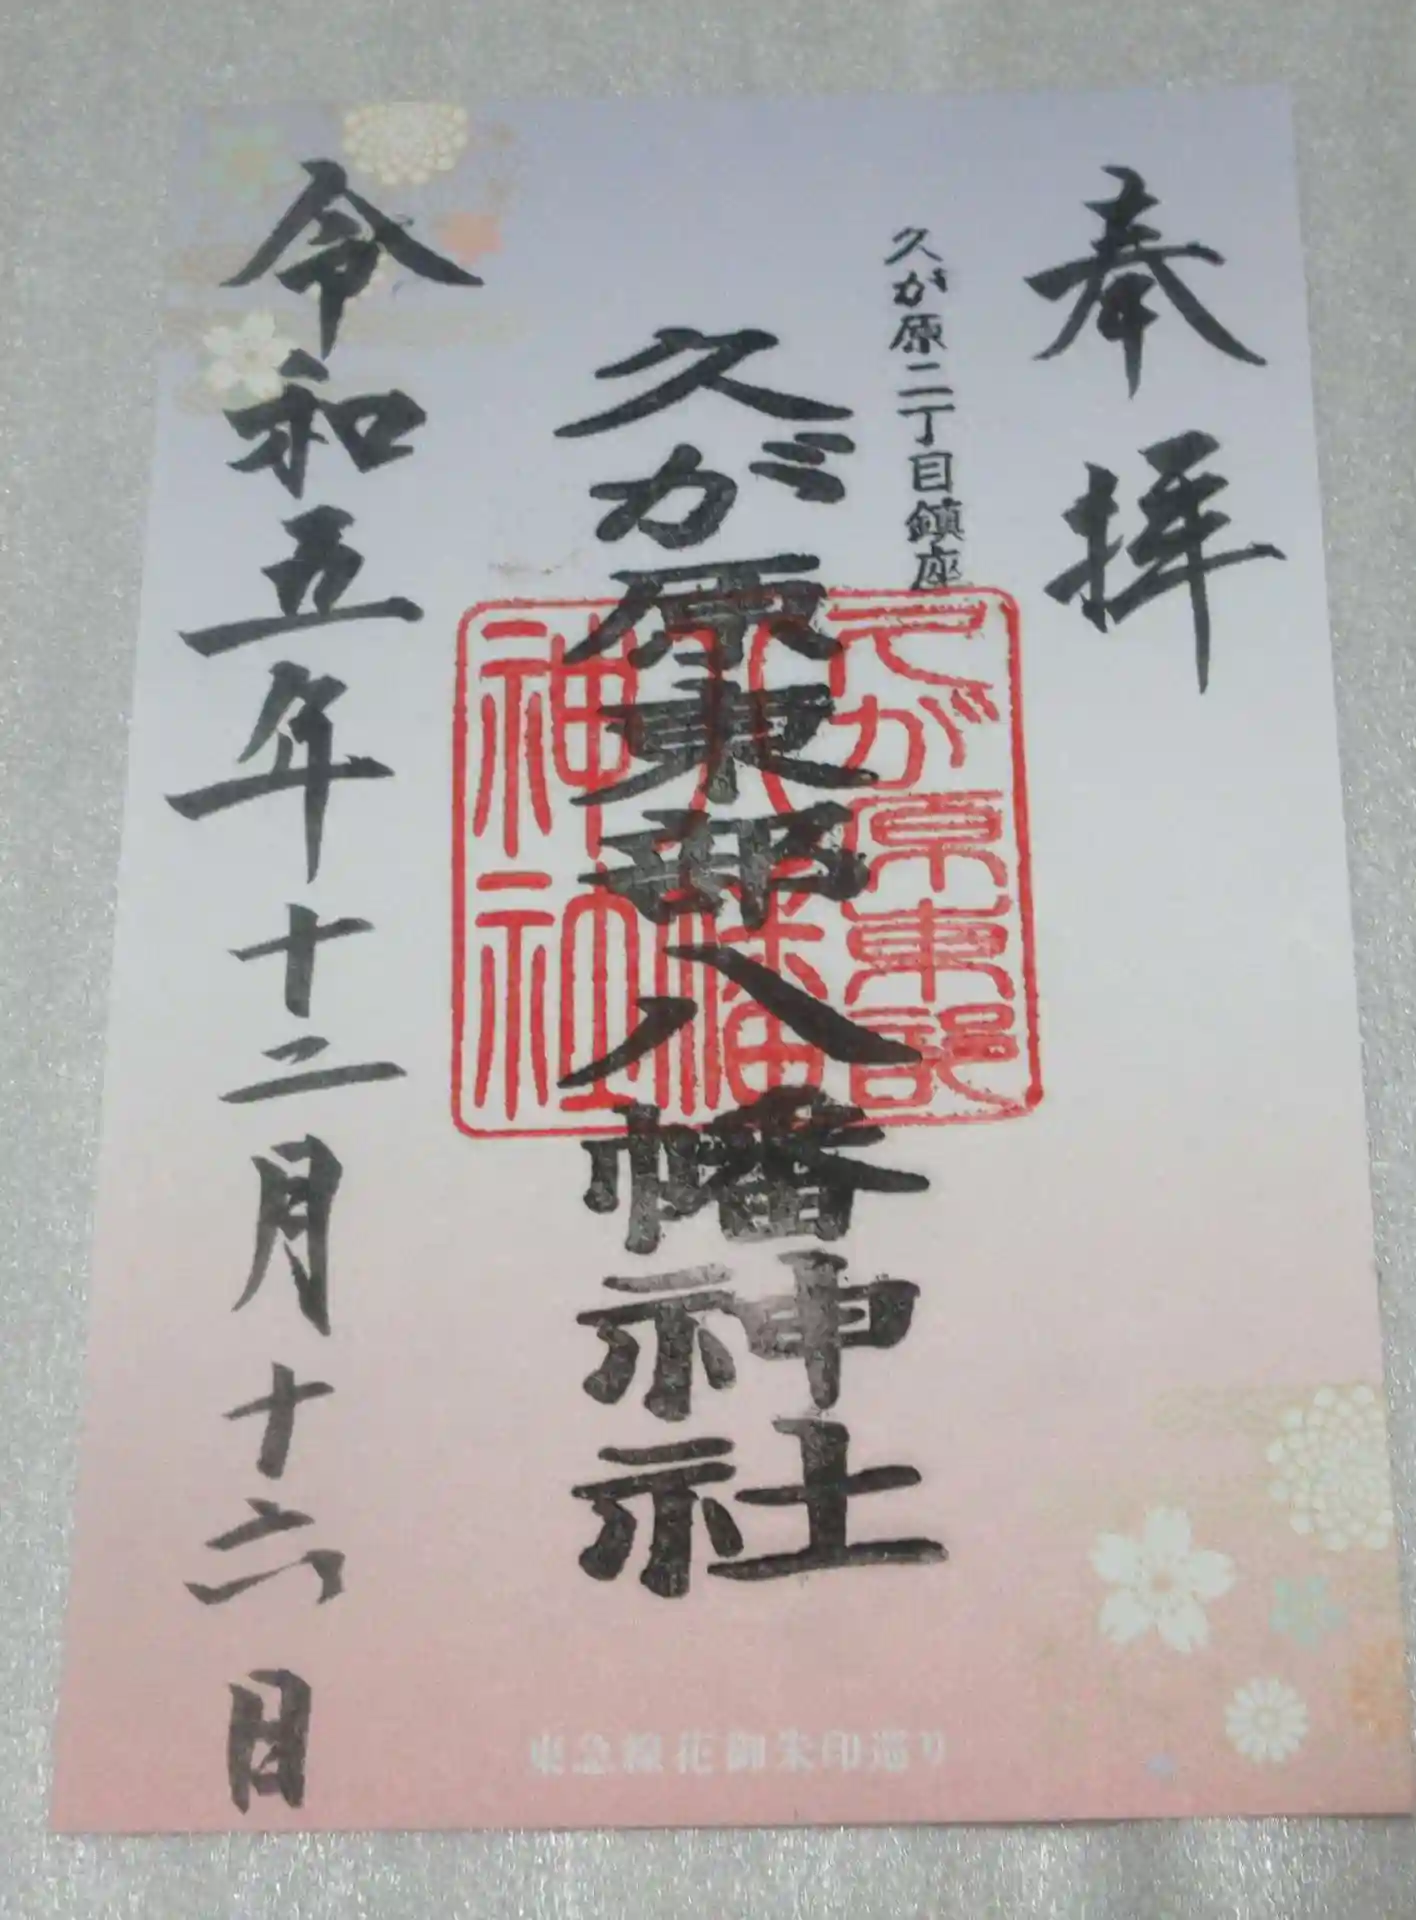 奉拝
久が原二丁目鎮座
久が原東部八幡神社
久が原東部
八幡
神社
令和五年十二月十六日
東急線花御朱印巡り